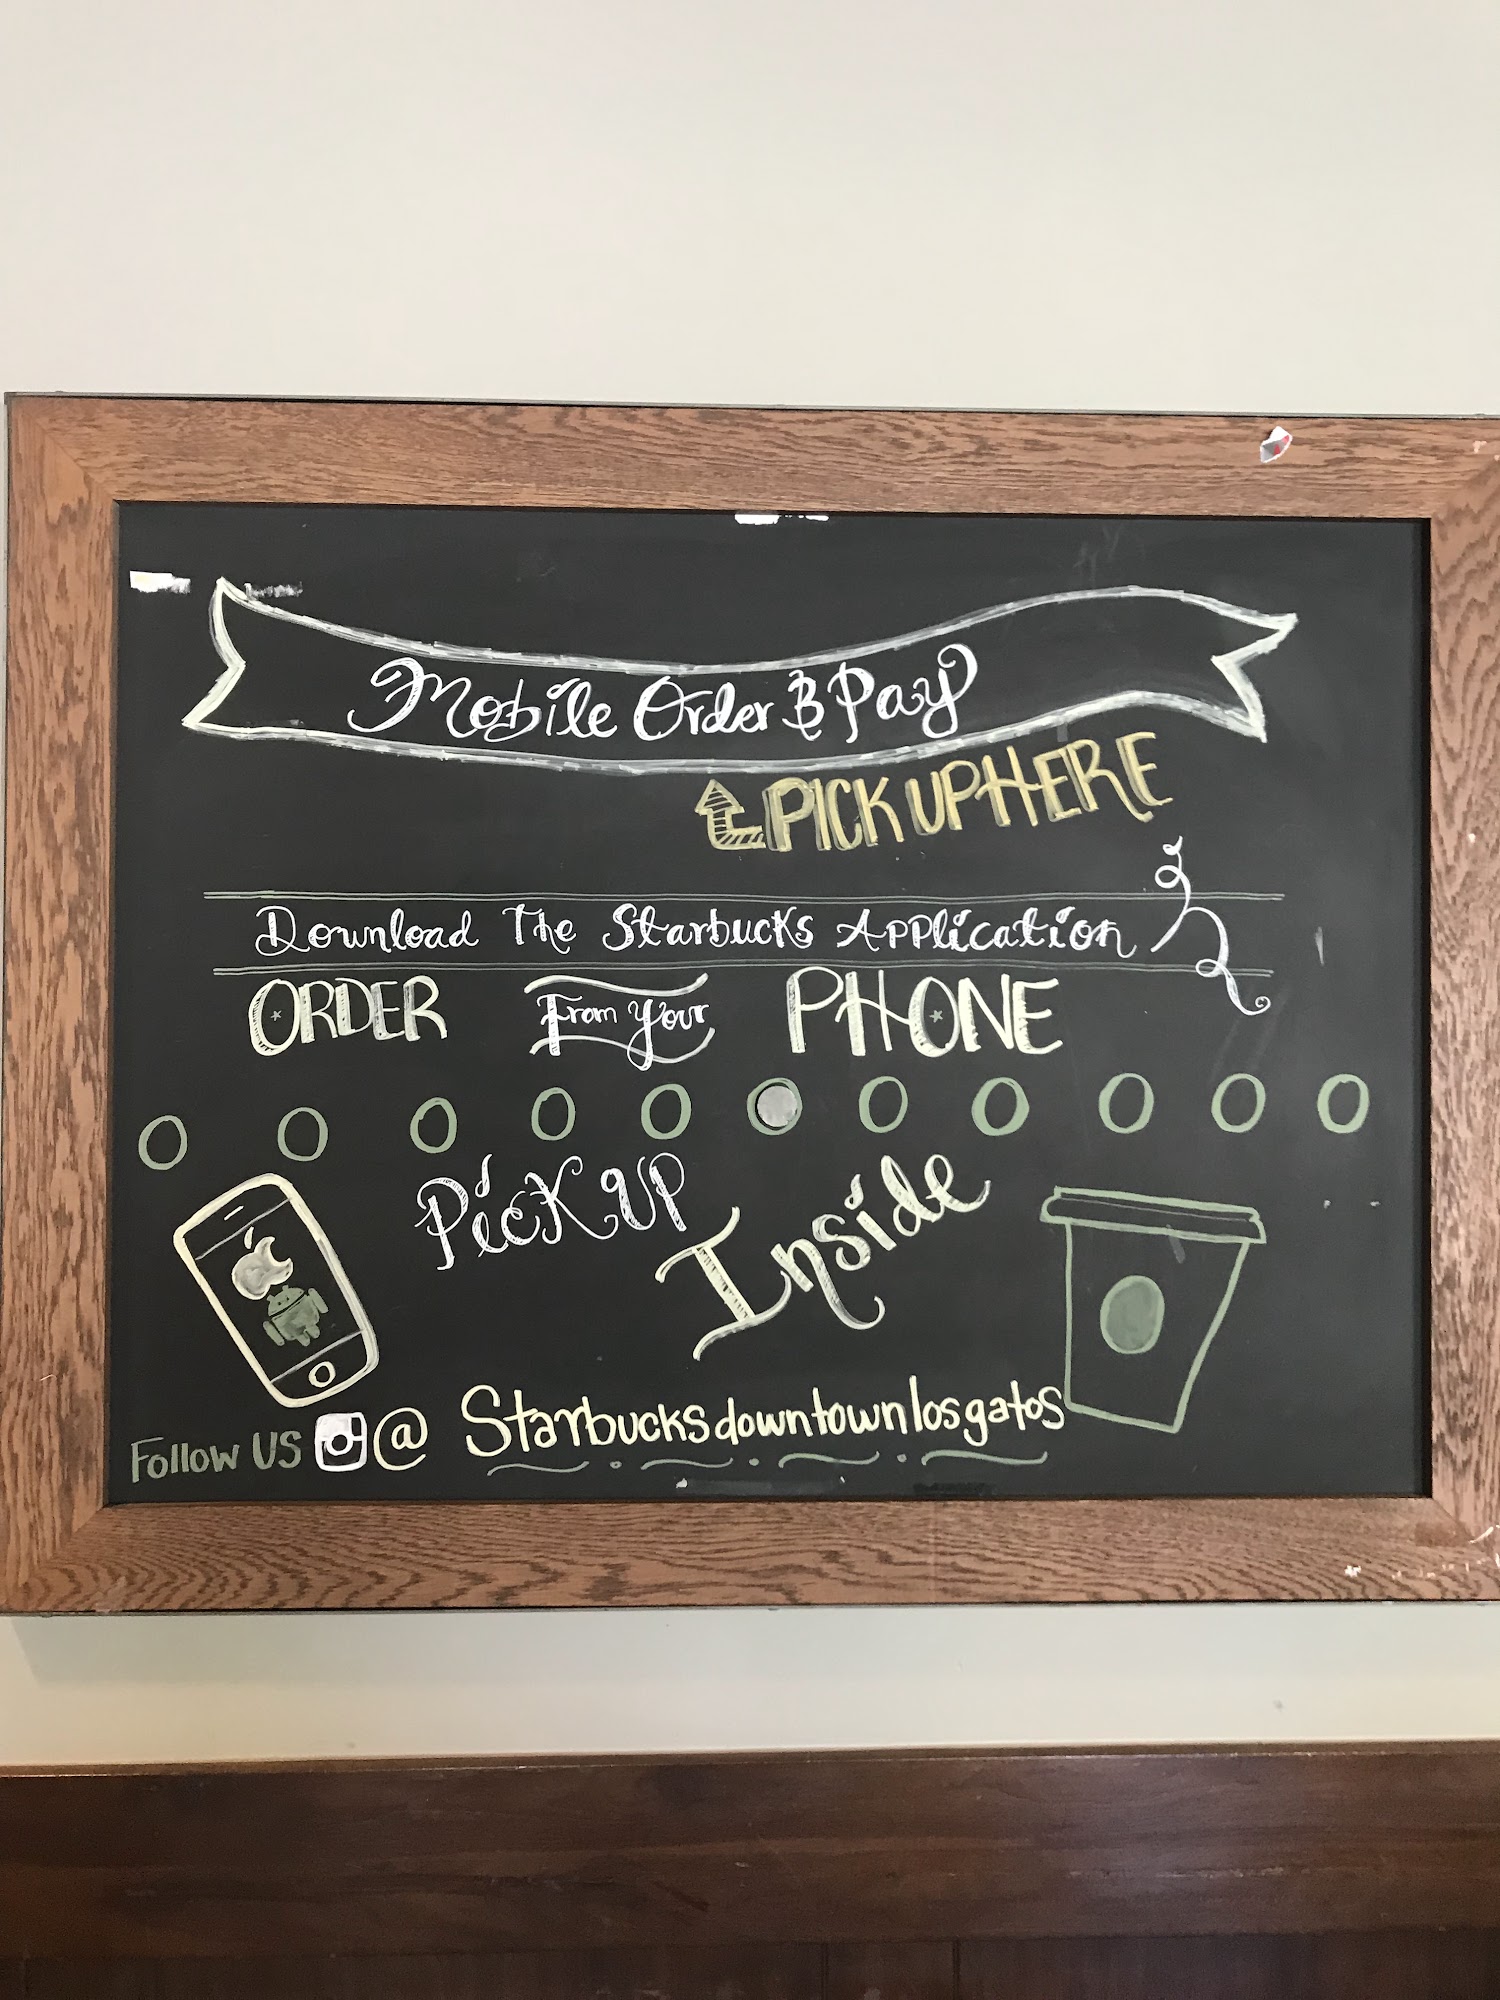 Mobile Order & Pay
PICK UP HERE
Download The Starbucks Application
ORDER From Your PHONE
Pick UP
Inside
Follow US @ Starbucksdowntownlosgatos